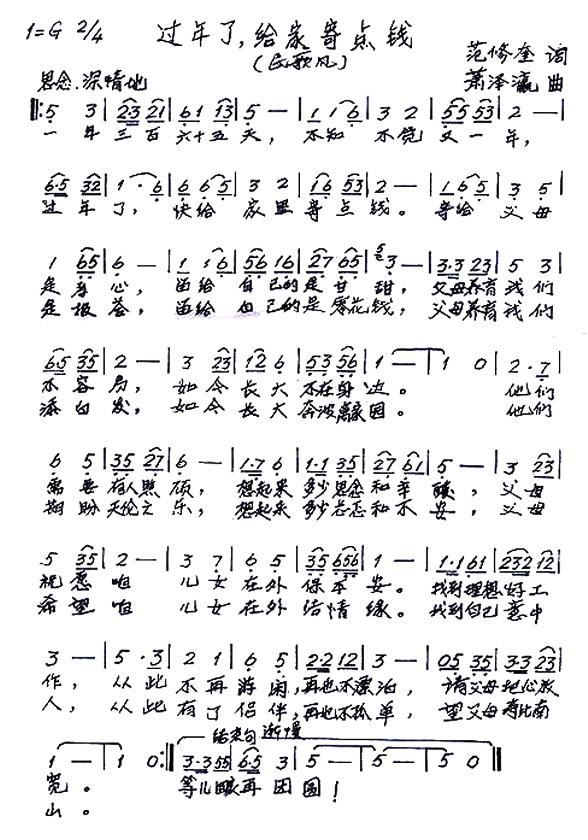 1=G 2/4 过年了,给家寄点钱
(民歌风)
范修奎 词
思念.深情地
萧泽瀛 曲
‖: 5 3 | 23 21 | 61 13 | 5 — | 1 16 | 3 2 | 55 53 | 2 — |
一年三百六十五天，不知不觉又一年，
6·5 32 | 1 · 6 | 6 65 | 3 2 | 16 53 | 2 — | 1 65 | 3 5 |
过年了，快给家里寄点钱。寄给父母
1 65 | 6 — | 1 16 | 56 16 | 27 65 | 3 — | 3·3 23 | 5 3 |
是孝心，留给自己的是甘甜，父母养育我们
是报答，留给自己的是零花钱，父母养育我们
65 35 | 2 — | 3 23 | 12 6 | 53 56 | 1 — | 1 0 | 2 · 7 |
不容易，如今长大不在身边。他们
添白发，如今长大奔波离家园。他们
6 5 | 35 27 | 6 — | 1·7 6 | 1·1 35 | 27 61 | 5 — | 3 23 |
需要有人照顾，想起来多少思念和辛酸，父母
期盼天伦之乐，想起来多少忐忑和不安，父母
5 35 | 2 — | 3 7 | 6 5 | 35 656 | 1 — | 1·1 61 | 232 12 |
祝愿咱儿女在外保平安。找到理想好工
希望咱儿女在外结情缘。找到自己意中
3 — | 5 · 3 | 2 1 | 6 5 | 2·2 12 | 3 — | 05 35 | 3·3 23 |
作，从此不再游闲，再也不漂泊，请父母把心放
人，从此有了侣伴，再也不孤单，望父母寿比南
结束句 渐慢
1 — | 1 0 :‖ 3·3 55 | 6·5 3 | 5 — | 5 — | 5 0 ‖
宽。等儿 再团圆！
山。